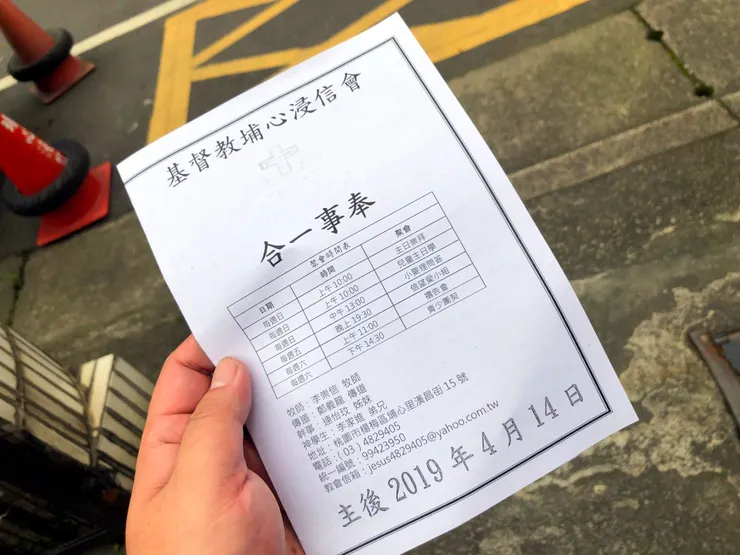 基督教埔心浸信會
合一事奉
聚會時間表
日期 時間 聚會
每週日 上午 10:00 主日崇拜
每週日 上午 10:00 兒童主日學
每週日 中午 13:00 小要理問答
每週五 晚上 19:30 信望愛小組
每週六 上午 11:00 禱告會
每週六 下午 14:30 青少團契
牧師：李崇信 牧師
傳道：鄭義龍 傳道
幹事：連怡玟 姊妹
神學生：李家進 弟兄
地址：桃園市楊梅區埔心里漢昌街 15 號
電話：( 03 ) 4829405
統一編號：99423950
教會信箱：jesus4829405@yahoo.com.tw
主後 2019 年 4 月 14 日